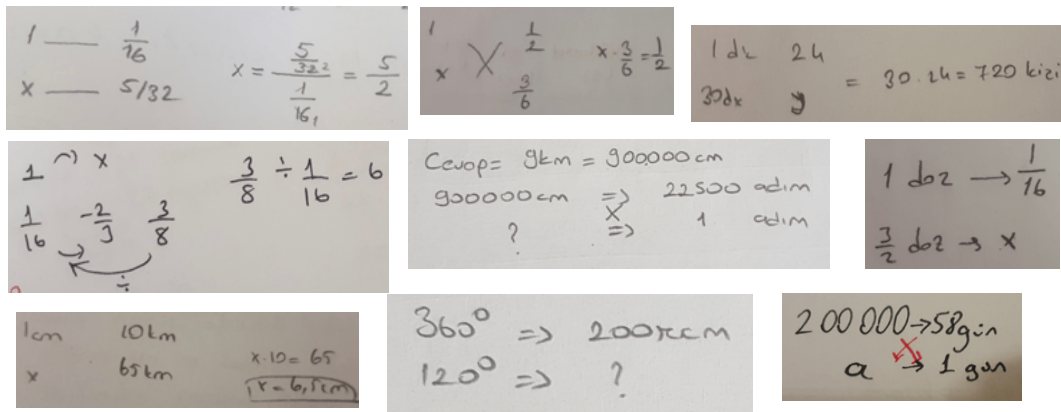 1 —— 1/16
x —— 5/32
x = (5/32) / (1/16) = 5/2
1 1/2
x 3/6
x · 3/6 = 1/2
1 dk 24
30dk y
= 30 . 24 = 720 kişi
1 x
1/16 -2/3 3/8
÷
3/8 ÷ 1/16 = 6
Cevap = 9km = 900.000 cm
900000 cm => 22500 adım
X
? => 1 adım
1 doz → 1/16
3/2 doz → x
1cm 10km
x 65km
x · 10 = 65
x = 6,5cm
360° => 200πcm
120° => ?
200 000 → 58 gün
a → 1 gün